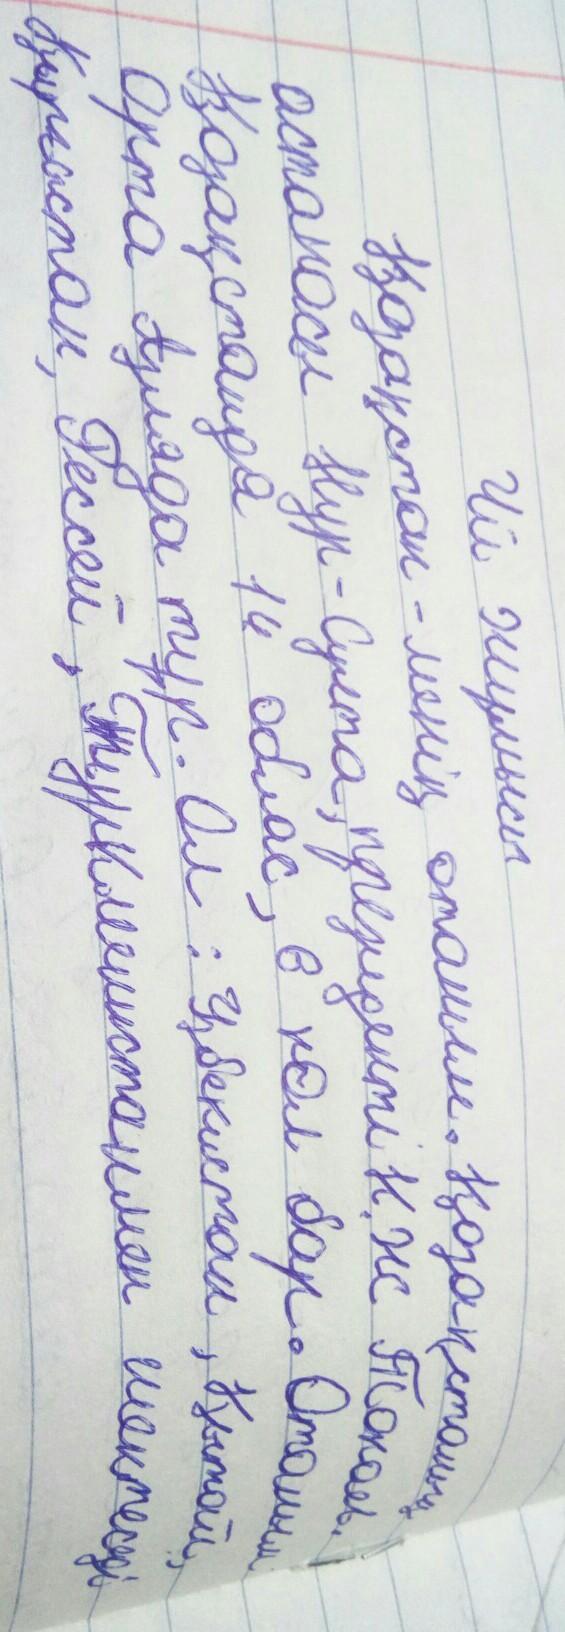 Үй жұмысы
Қазақстан - менің отаным. Қазақстанның
астанасы Нұр-Сұлта, президенті Қ.Ж Тоқаев.
Қазақстанда 14 облас, 6 көл бар. Отаным
Орта Азияда тұр. Ол : Ұзбекистан, Қытай,
Қырғыстан, Рессей, Түркменистанмен шектеседі